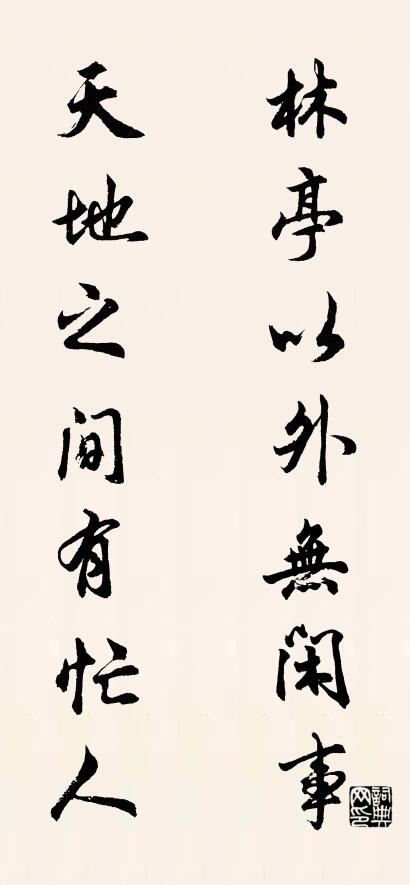 林亭以外無閑事
天地之間有忙人
詞典网印